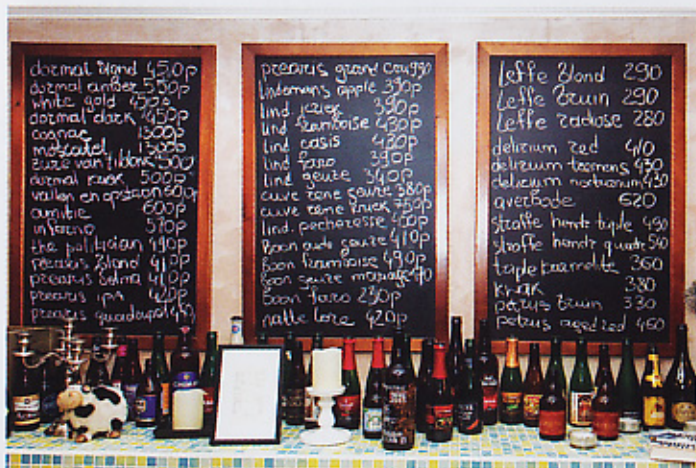 dormal blond 450p
dormal amber 550p
white gold 450p
dormal dark 450p
cognac 1300p
moscatel 1300p
500
dormal kriek 500p
vallen en opstaan 600p
amitie 600p
inferno 570p
the politician 490p
prearis blond 410p
prearis 410p
prearis ipa 420p
prearis quadrupel
prearis grand cru 990
Lindemans apple 390p
lind. kriek 390p
lind framboise 430p
lind casis 430p
lind faro 390p
lind. geuze 340p
cuve rene geuze 380p
cuve rene kriek 750p
lind. pecheresse 450p
Boon oude geuze 410p
Boon framboise 490p
Boon geuze mariage
Boon faro 230p
natte 420p
leffe Blond 290
leffe Bruin 290
leffe radieuse 280
delirium red 410
delirium tremens 430
delirium nocturnum 430
averbode 620
straffe hendr triple 490
straffe hendr quadr 540
triple karmeliet 360
kwak 380
petrus bruin 330
petrus aged red 460